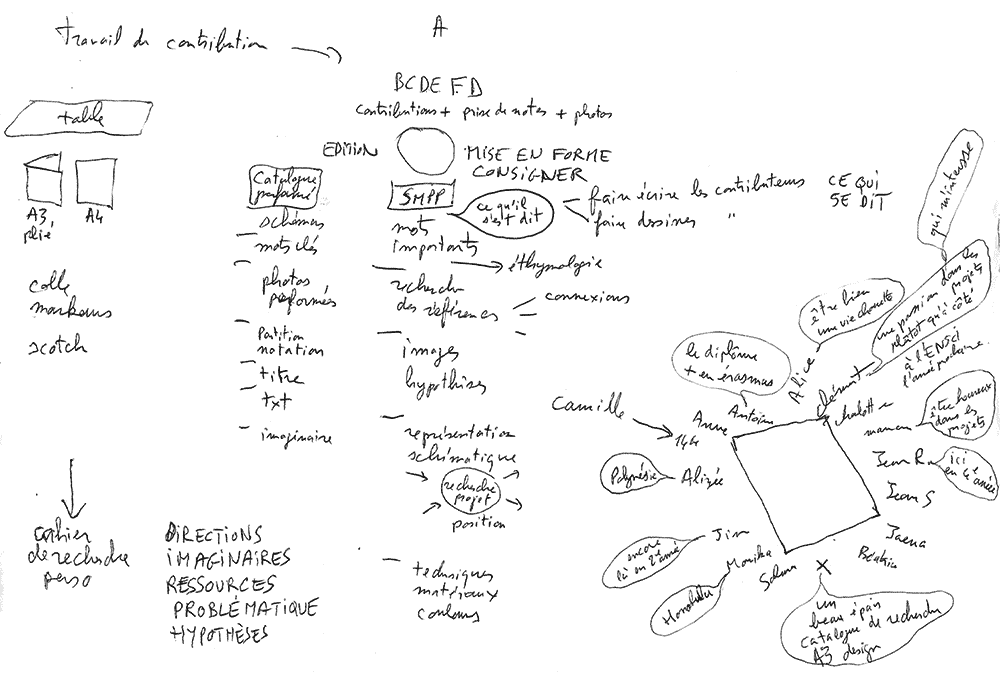 A
travail de contribution
BCDE F.D
contributions + prise de notes + photos
table
EDITION
MISE EN FORME
CONSIGNER
A3
plié
A4
colle
markeurs
scotch
cahier
de recherche
perso
Catalogue
performé
schémas
mots clés
photos
performés
Partition
notation
titre
txt
imaginaire
DIRECTIONS
IMAGINAIRES
RESSOURCES
PROBLÉMATIQUE
HYPOTHÈSES
SMPP
ce qu'il
s'est dit
faire écrire les contributeurs
faire dessiner "
CE QUI
SE DIT
mots
importants
éthymologie
recherche
des références
connexions
images
hypothèses
représentation
schématique
recherche
projet
position
techniques
matériaux
couleurs
qui m'intéresse
une passion dans les
projets
plutôt qu'à côté
à l'ENSCI
l'année prochaine
être bien
une vie chouette
Alice
le diplôme
+ en érasmus
Antoine
Anne
144
Camille
Polynésie
Alizée
encore
là en 2e année
Jim
Honolulu
Monika
être heureux
dans les
projets
Jean Ra
ici
en 4e année
Jean S
un
beau épais
catalogue de recherche
A3 design